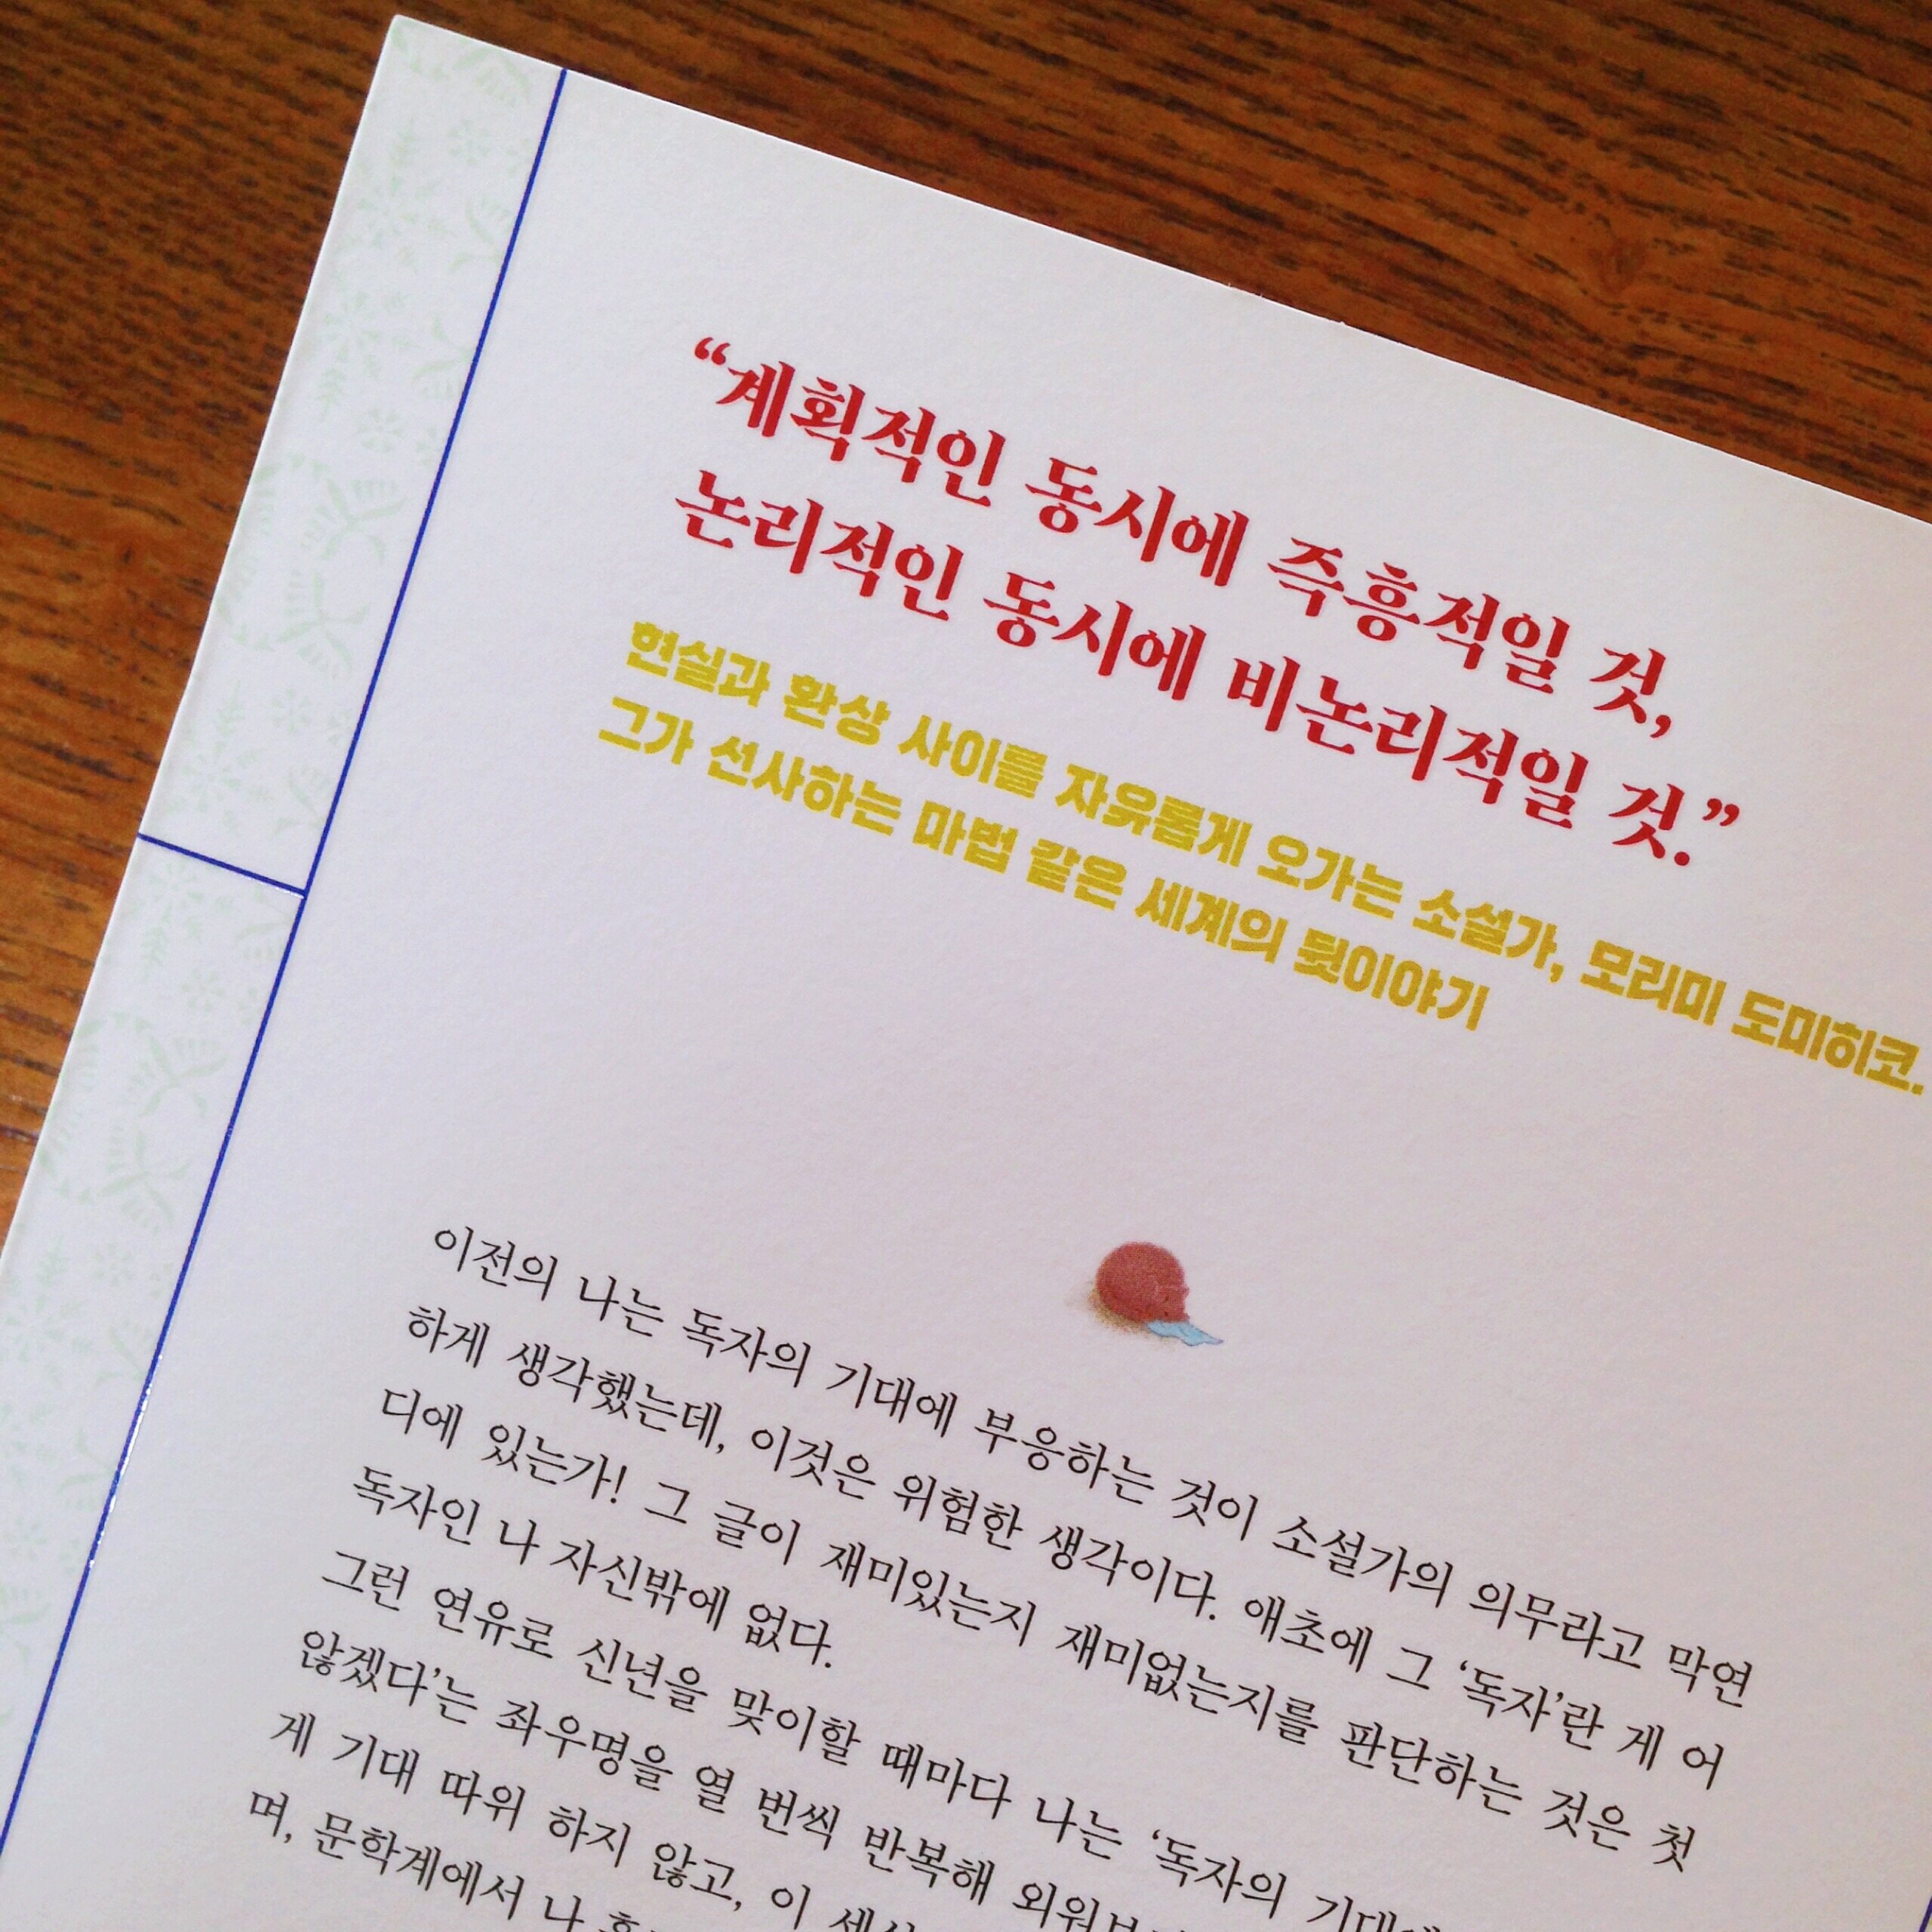 “계획적인 동시에 즉흥적일 것,
논리적인 동시에 비논리적일 것.”
현실과 환상 사이를 자유롭게 오가는 소설가, 모리미 도미히코.
그가 선사하는 마법 같은 세계의 뒷이야기
이전의 나는 독자의 기대에 부응하는 것이 소설가의 의무라고 막연
하게 생각했는데, 이것은 위험한 생각이다. 애초에 그 ‘독자’란 게 어
디에 있는가! 그 글이 재미있는지 재미없는지를 판단하는 것은 첫
독자인 나 자신밖에 없다.
그런 연유로 신년을 맞이할 때마다 나는 ‘독자의
않겠다’는 좌우명을 열 번씩 반복해
게 기대 따위 하지 않고, 이
며, 문학계에서 나